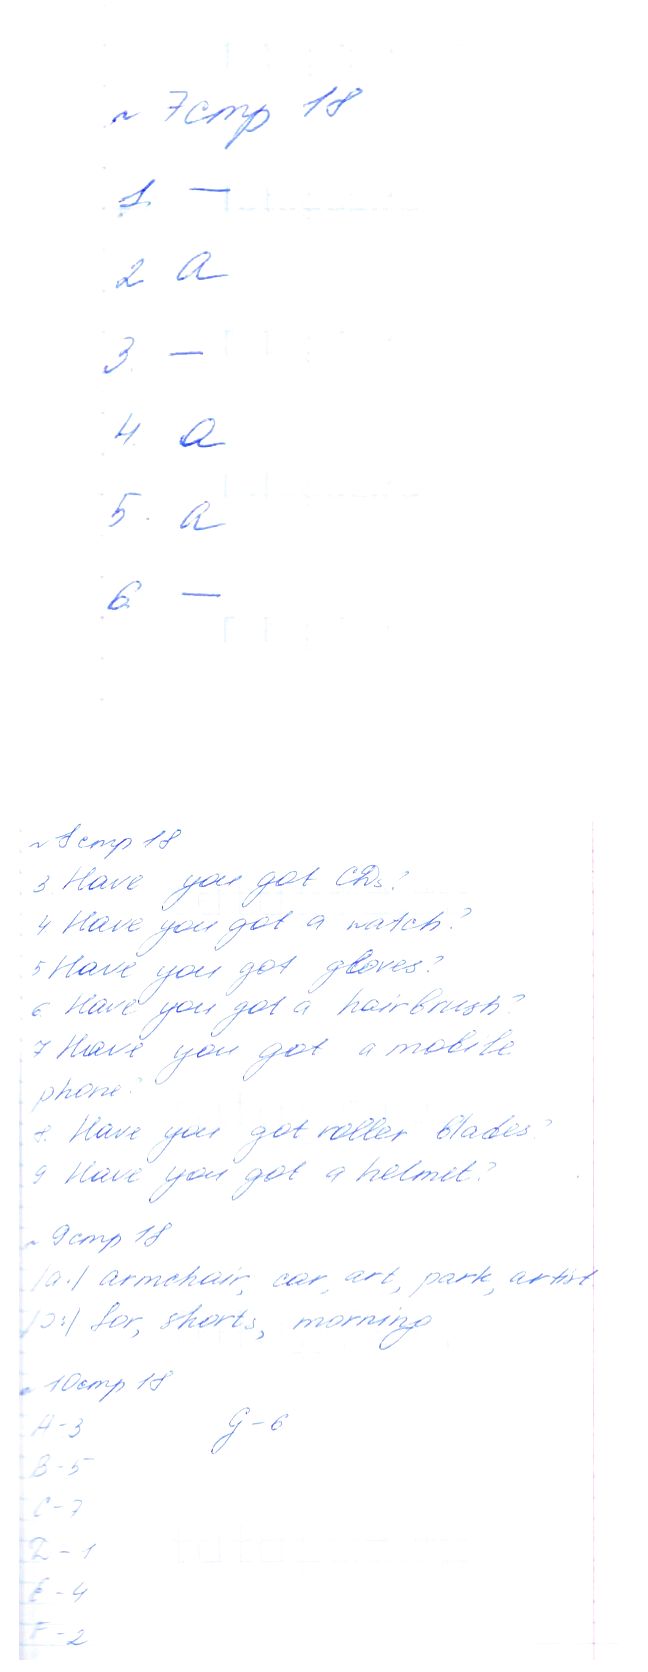 ~ 7стр 18
1. —
2 a
3. —
4. a
5. a
6 —
~ 8стр 18
3 Have you got CDs?
4 Have you got a watch?
5 Have you got gloves?
6 Have you got a hairbrush?
7 Have you got a mobile
phone?
8. Have you got roller blades?
9 Have you got a helmet?
~ 9стр 18
/a:/ armchair, car, art, park, artist
/ɔ:/ for, shorts, morning
~ 10стр 18
A-3 G-6
B-5
C-7
D-1
E-4
F-2